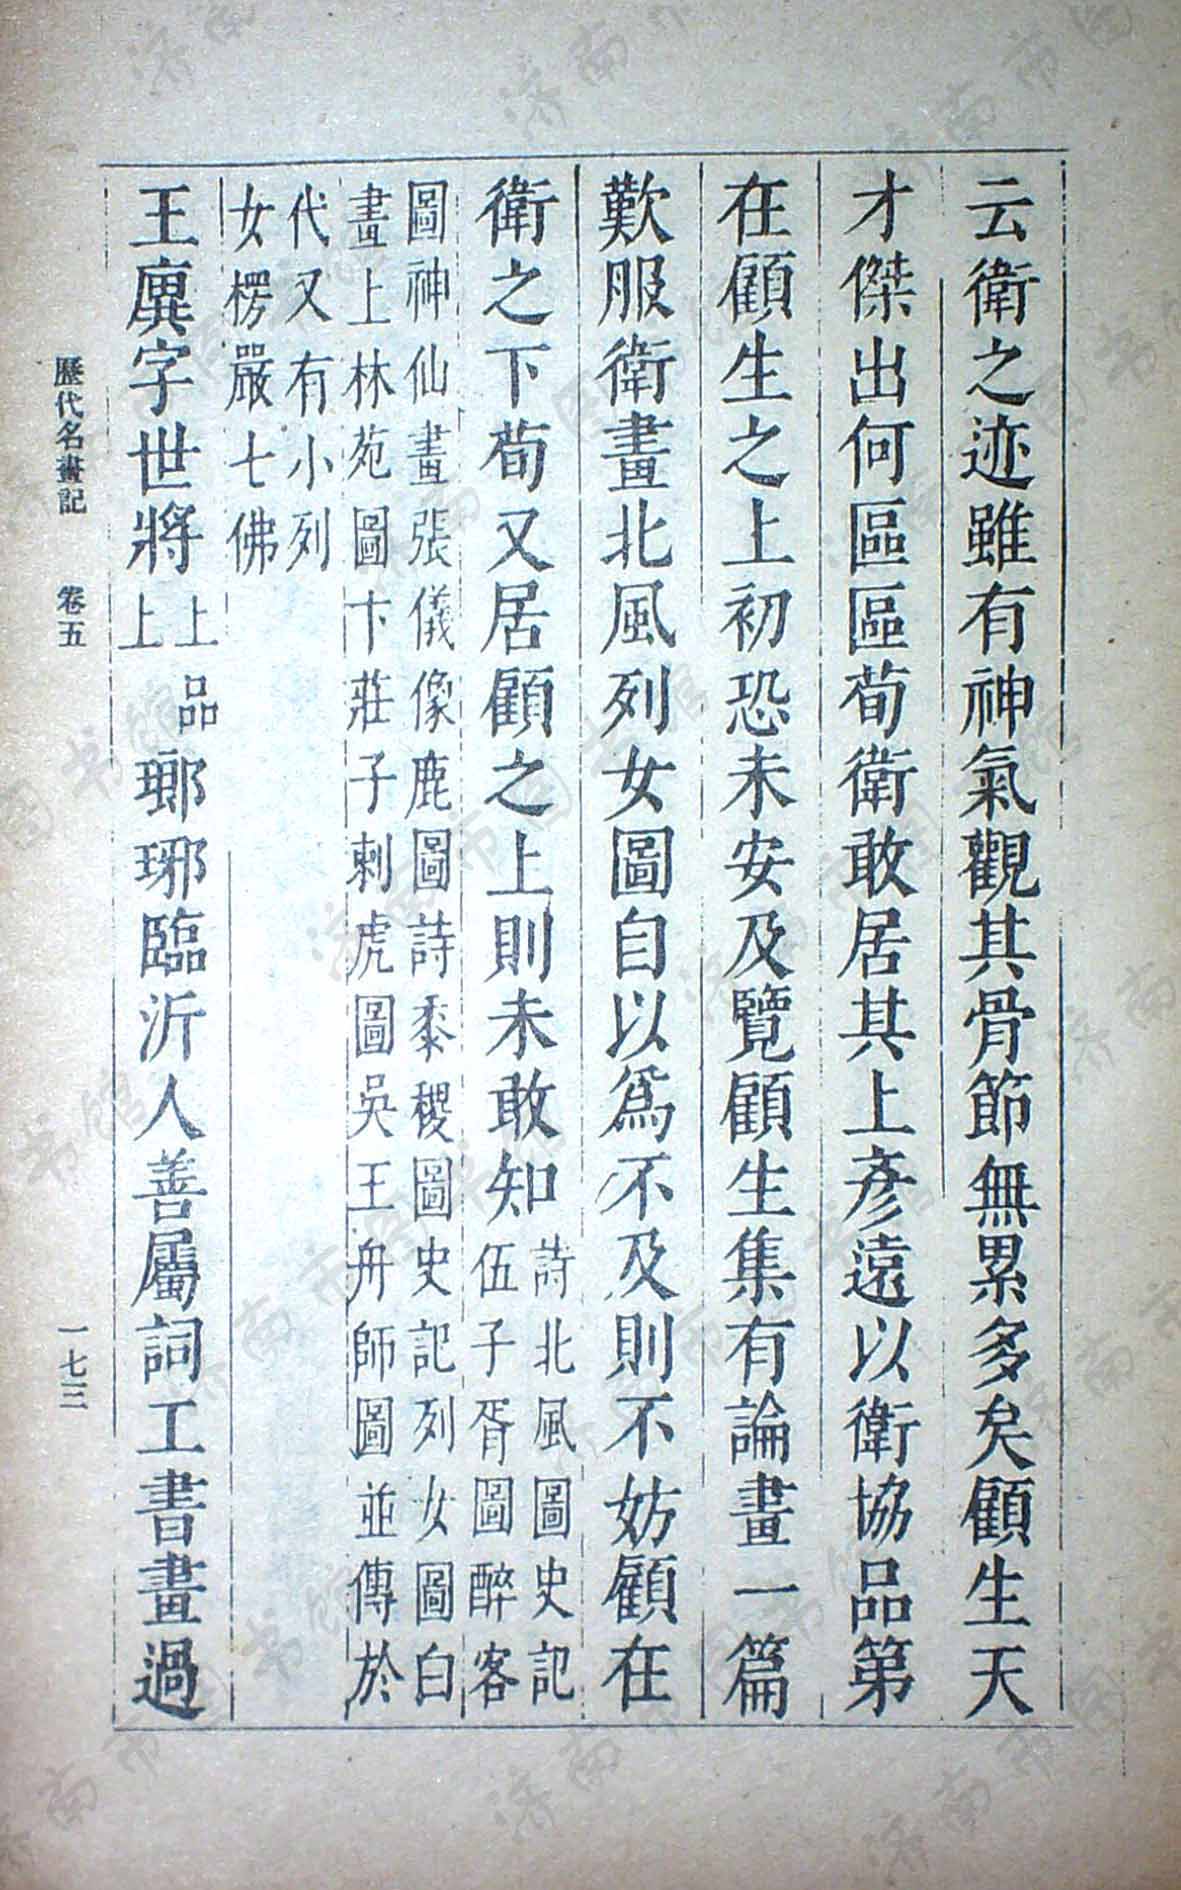 云衛之迹雖有神氣觀其骨節無累多矣顧生天
才傑出何區區荀衛敢居其上彥遠以衛協品第
在顧生之上初恐未安及覽顧生集有論畫一篇
歎服衛畫北風列女圖自以爲不及則不妨顧在
衛之下荀又居顧之上則未敢知詩北風圖史記
伍子胥圖醉客
圖神仙畫張儀像鹿圖詩黍稷圖史記列女圖白
畫上林苑圖卞莊子刺虎圖吳王舟師圖並傳於
代又有小列
女楞嚴七佛
王廙字世將上品
上瑯琊臨沂人善屬詞工書畫過
歷代名畫記 卷五 一七三
濟南市图书馆